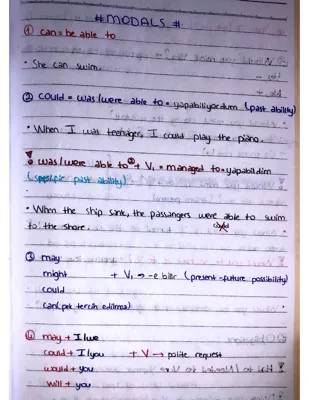 # MODALS #
① can = be able to
• She can swim.
② could = was/were able to = yapabiliyordum (past ability)
• When I was teenager, I could play the piano.
! was/were able to + V₁ = managed to = yapabildim
(specific past ability)
• When the ship sank, the passangers were able to swim
could
to the shore.
③ may
might + V₁ → -e bilir (present-future possibility)
could
can (pek tercih edilmez)
④ may + I/we
could + I/you + V → polite request
would + you
will + you